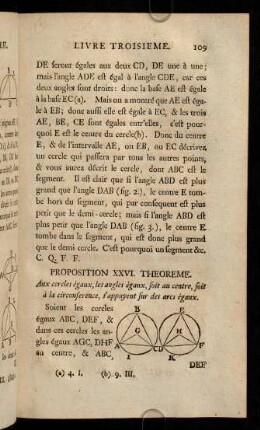 LIVRE TROISIEME. 109
DE seront égales aux deux CD, DE une à une;
mais l'angle ADE est égal à l'angle CDE, car ces
deux angles sont droits: donc la base AE est égale
à la base EC (a). Mais on a montré que AE est éga-
le à EB; donc aussi elle est égale à EC, & les trois
AE, BE, CE sont égales entr'elles, c'est pour-
quoi E est le centre du cercle (b). Donc du centre
E, & de l'intervalle AE, ou EB, ou EC décrivez
un cercle qui passera par tous les autres points,
& vous aurez décrit le cercle, dont ABC est le
segment. Il est clair que si l'angle ABD est plus
grand que l'angle DAB (fig. 2.), le centre E tom-
be hors du segment, qui par consequent est plus
petit que le demi-cercle; mais si l'angle ABD est
plus petit que l'angle DAB (fig. 3.), le centre E
tombe dans le segment, qui est donc plus grand
que le demi cercle. C'est pourquoi un segment &c.
C. Q. F. F.
PROPOSITION XXVI. THEOREME.
Aux cercles égaux, les angles égaux, soit au centre, soit
à la circonference, s'appuyent sur des arcs égaux.
Soient les cercles
égaux ABC, DEF, &
dans ces cercles les an-
gles égaux AGC, DHF
au centre, & ABC,
DEF
B E
G H
A CD F
I K
(a) 4. I. (b) 9. III.